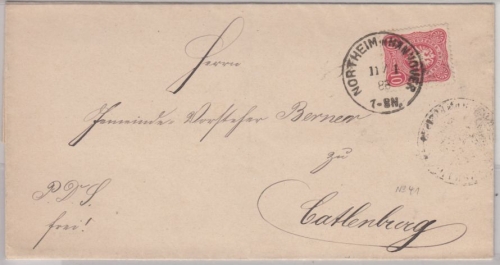 NORTHEIM HANNOVER
11/1
8
7-8N.
10
Herrn
Gemeinde-Vorsteher Berner
zu
Catlenburg
No 41
P.D.S.
frei!